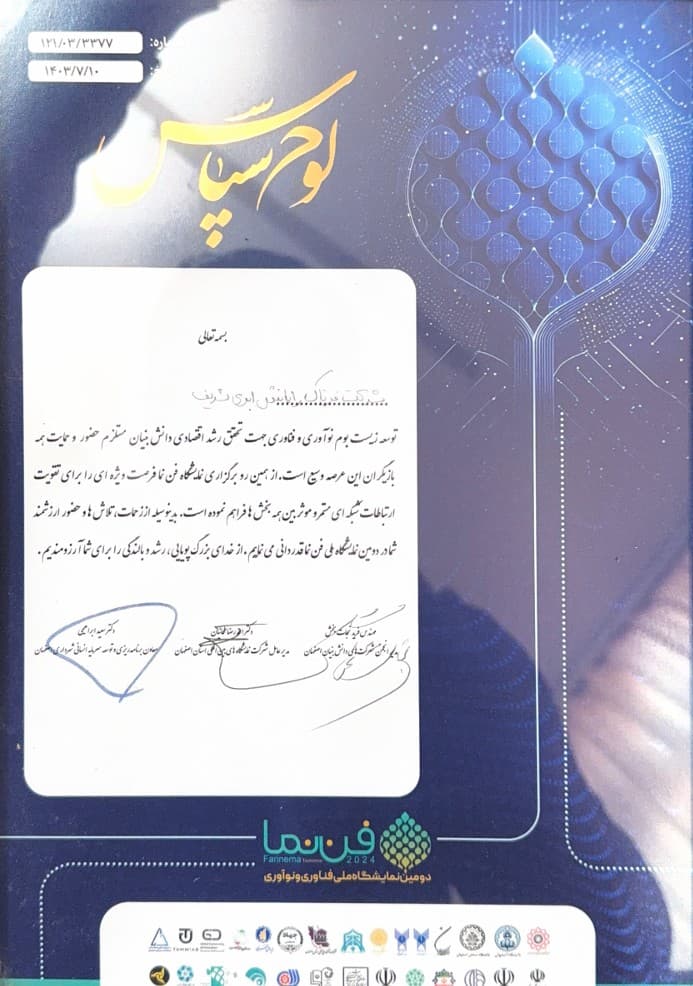 ۱۲۱/۰۳/۳۳۷۷
۱۴۰۳/۷/۱۰
لوح سپاس
بسمه تعالی
شرکت
توسعه زیست بوم نوآوری و فناوری جهت تحقق رشد اقتصادی دانش بنیان مستلزم حضور و حمایت همه
بازیگران این عرصه وسیع است. از همین رو برگزاری نمایشگاه فن نما فرصت ویژه ای را برای تقویت
ارتباطات شبکه ای مستمر و موثر بین همه بخش ها فراهم نموده است. بدینوسیله از زحمات، تلاش ها و حضور ارزشمند
شما در دومین نمایشگاه ملی فن نما قدردانی می نمایم. از خدای بزرگ پویایی، رشد و بالندگی را برای شما آرزومندیم.
مهندس فرید
دبیر انجمن شرکت های دانش بنیان اصفهان
دکتر احمدرضا
مدیرعامل شرکت نمایشگاه های بین المللی استان اصفهان
دکتر سعید ابراهیمی
معاون برنامه ریزی و توسعه سرمایه انسانی شهرداری اصفهان
فن نما
Fannema
2024
دومین نمایشگاه ملی فناوری و نوآوری